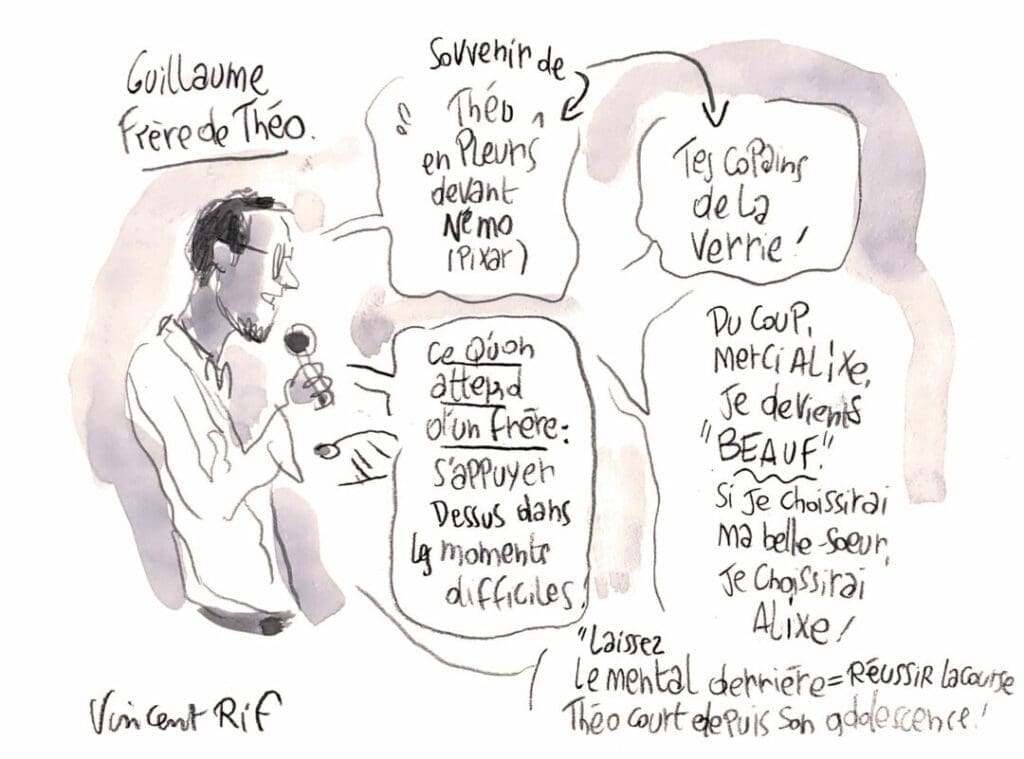 Guillaume
Frère de Théo.
Souvenir de
Théo
en Pleurs
devant
Némo
(Pixar)
Tes Copains
de La
Verrie !
Ce Qu'on
attend
d'un Frère :
s'appuyer
Dessus dans
les moments
difficiles.
Du Coup,
Merci ALixe,
Je deviens
"BEAUF."
Si Je Choissirai
Ma belle-soeur,
Je Choissirai
ALixe !
"Laissez
Le mental derrière = RÉUSSIR La course
Théo court depuis son adolescence !
Vincent Rif